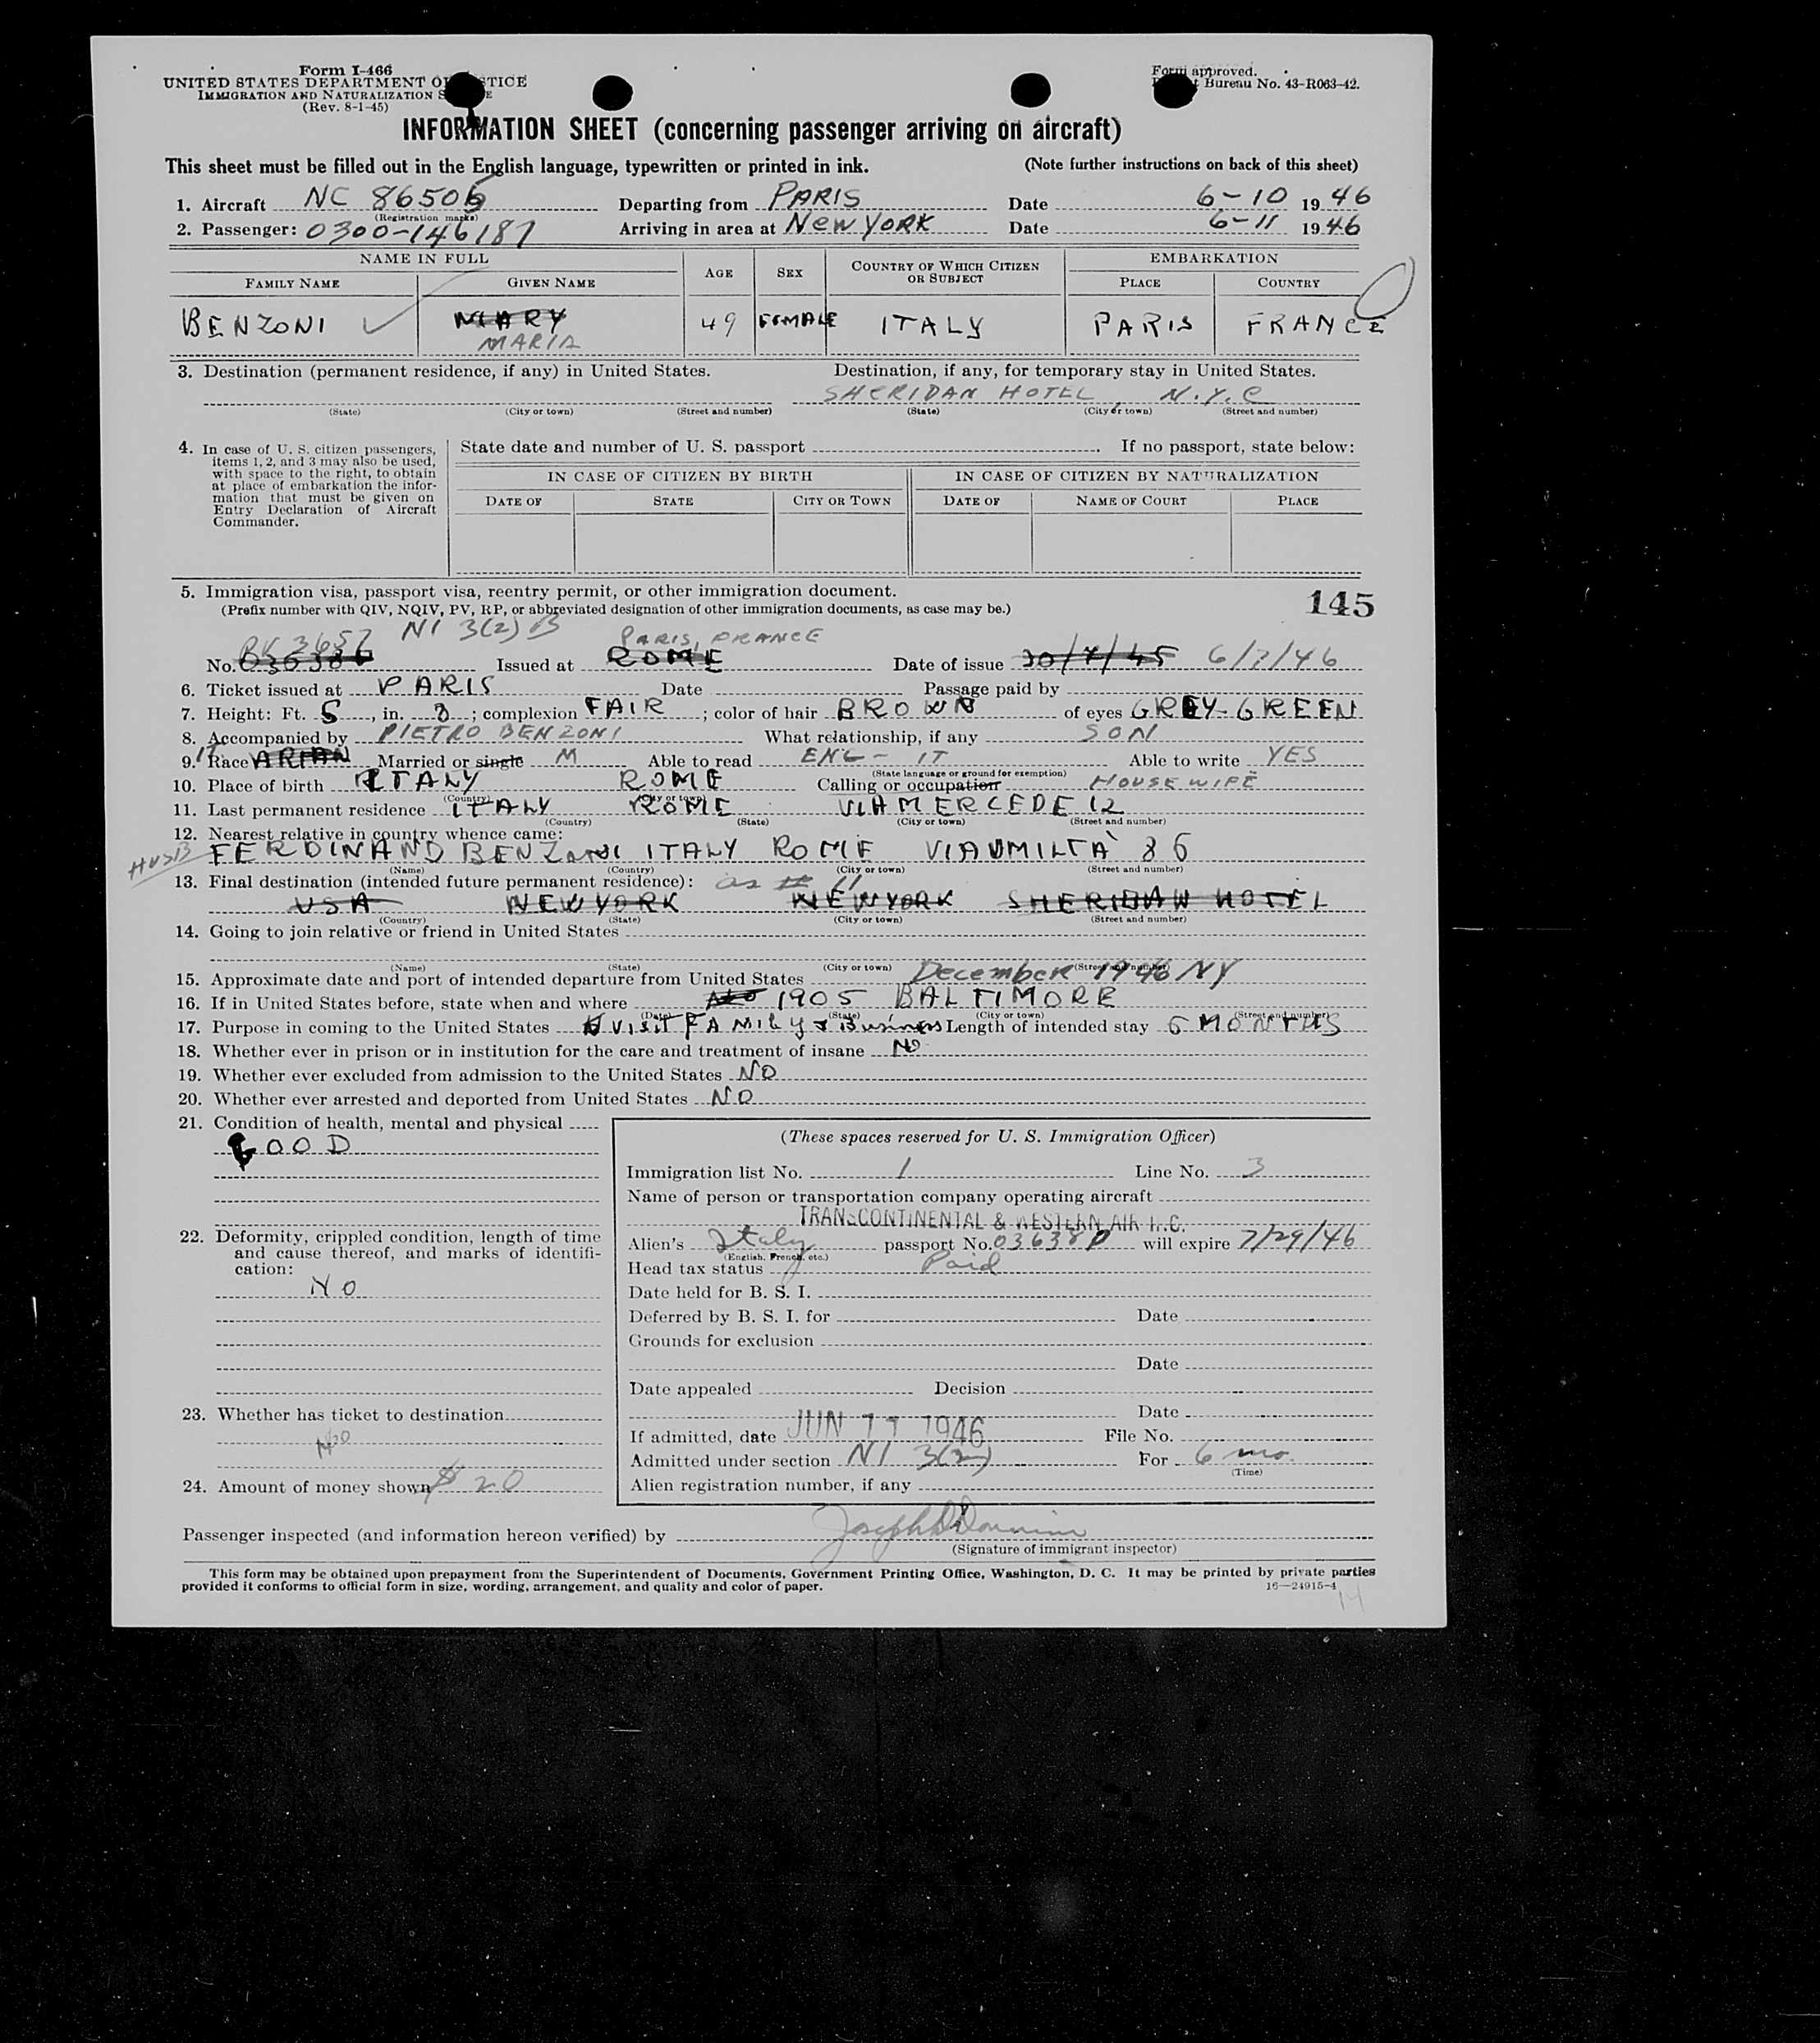 Form I-466
UNITED STATES DEPARTMENT OF JUSTICE
IMMIGRATION AND NATURALIZATION
(Rev. 8-1-45)
Form approved.
Bureau No. 43-R063-42.
INFORMATION SHEET (concerning passenger arriving on aircraft)
This sheet must be filled out in the English language, typewritten or printed in ink. (Note further instructions on back of this sheet)
1. Aircraft NC 86505 Departing from PARIS Date 6-10 1946
(Registration marks)
2. Passenger: 0300-146187 Arriving in area at New YORK Date 6-11 1946
NAME IN FULL AGE SEX COUNTRY OF WHICH CITIZEN OR SUBJECT EMBARKATION
FAMILY NAME GIVEN NAME PLACE COUNTRY
BENZONI MARY 49 FEMALE ITALY PARIS FRANCE
MARIA
3. Destination (permanent residence, if any) in United States. Destination, if any, for temporary stay in United States.
SHERIDAN HOTEL, N.Y.C
(State) (City or town) (Street and number) (State) (City or town) (Street and number)
4. In case of U. S. citizen passengers, items 1, 2, and 3 may also be used, with space to the right, to obtain at place of embarkation the information that must be given on Entry Declaration of Aircraft Commander.
State date and number of U. S. passport If no passport, state below:
IN CASE OF CITIZEN BY BIRTH IN CASE OF CITIZEN BY NATURALIZATION
DATE OF STATE CITY OR TOWN DATE OF NAME OF COURT PLACE
5. Immigration visa, passport visa, reentry permit, or other immigration document.
(Prefix number with QIV, NQIV, PV, RP, or abbreviated designation of other immigration documents, as case may be.)
145
PV 3657 NI 3(2) B PARIS, FRANCE
No. Issued at ROME Date of issue 30/7/45 6/7/46
6. Ticket issued at PARIS Date Passage paid by
7. Height: Ft. 5, in. 3; complexion FAIR; color of hair BROWN of eyes GREY-GREEN
8. Accompanied by PIETRO BENZONI What relationship, if any SON
9. Race ARIAN IT Married or single M Able to read ENG - IT Able to write YES
(State language or ground for exemption)
10. Place of birth ITALY ROME Calling or occupation HOUSEWIFE
(Country) (City or town)
11. Last permanent residence ITALY ROME VIA MERCEDE 12
(Country) (State) (City or town) (Street and number)
12. Nearest relative in country whence came:
HUSB FERDINAND BENZONI ITALY ROME VIA UMILTÀ 86
(Name) (Country) (City or town) (Street and number)
13. Final destination (intended future permanent residence): as # 11
USA NEW YORK NEW YORK SHERIDAN HOTEL
(Country) (State) (City or town) (Street and number)
14. Going to join relative or friend in United States
(Name) (State) (City or town) (Street and number)
15. Approximate date and port of intended departure from United States December 1946 NY
16. If in United States before, state when and where 1905 BALTIMORE
(Date) (State) (City or town) (Street and number)
17. Purpose in coming to the United States VISIT FAMILY & Business Length of intended stay 6 MONTHS
18. Whether ever in prison or in institution for the care and treatment of insane NO
19. Whether ever excluded from admission to the United States NO
20. Whether ever arrested and deported from United States NO
21. Condition of health, mental and physical
GOOD
22. Deformity, crippled condition, length of time and cause thereof, and marks of identification:
NO
23. Whether has ticket to destination
NO
24. Amount of money shown $ 20
(These spaces reserved for U. S. Immigration Officer)
Immigration list No. 1 Line No. 3
Name of person or transportation company operating aircraft
TRANSCONTINENTAL & WESTERN AIR INC.
Alien's Italy passport No. 03638P will expire 7/29/46
(English, French, etc.)
Head tax status Paid
Date held for B. S. I.
Deferred by B. S. I. for Date
Grounds for exclusion
Date
Date appealed Decision
Date
If admitted, date JUN 11 1946 File No.
Admitted under section NI 3(2) For 6 mo.
(Time)
Alien registration number, if any
Passenger inspected (and information hereon verified) by Joseph
(Signature of immigrant inspector)
This form may be obtained upon prepayment from the Superintendent of Documents, Government Printing Office, Washington, D. C. It may be printed by private parties
provided it conforms to official form in size, wording, arrangement, and quality and color of paper.
16—24915-4
14